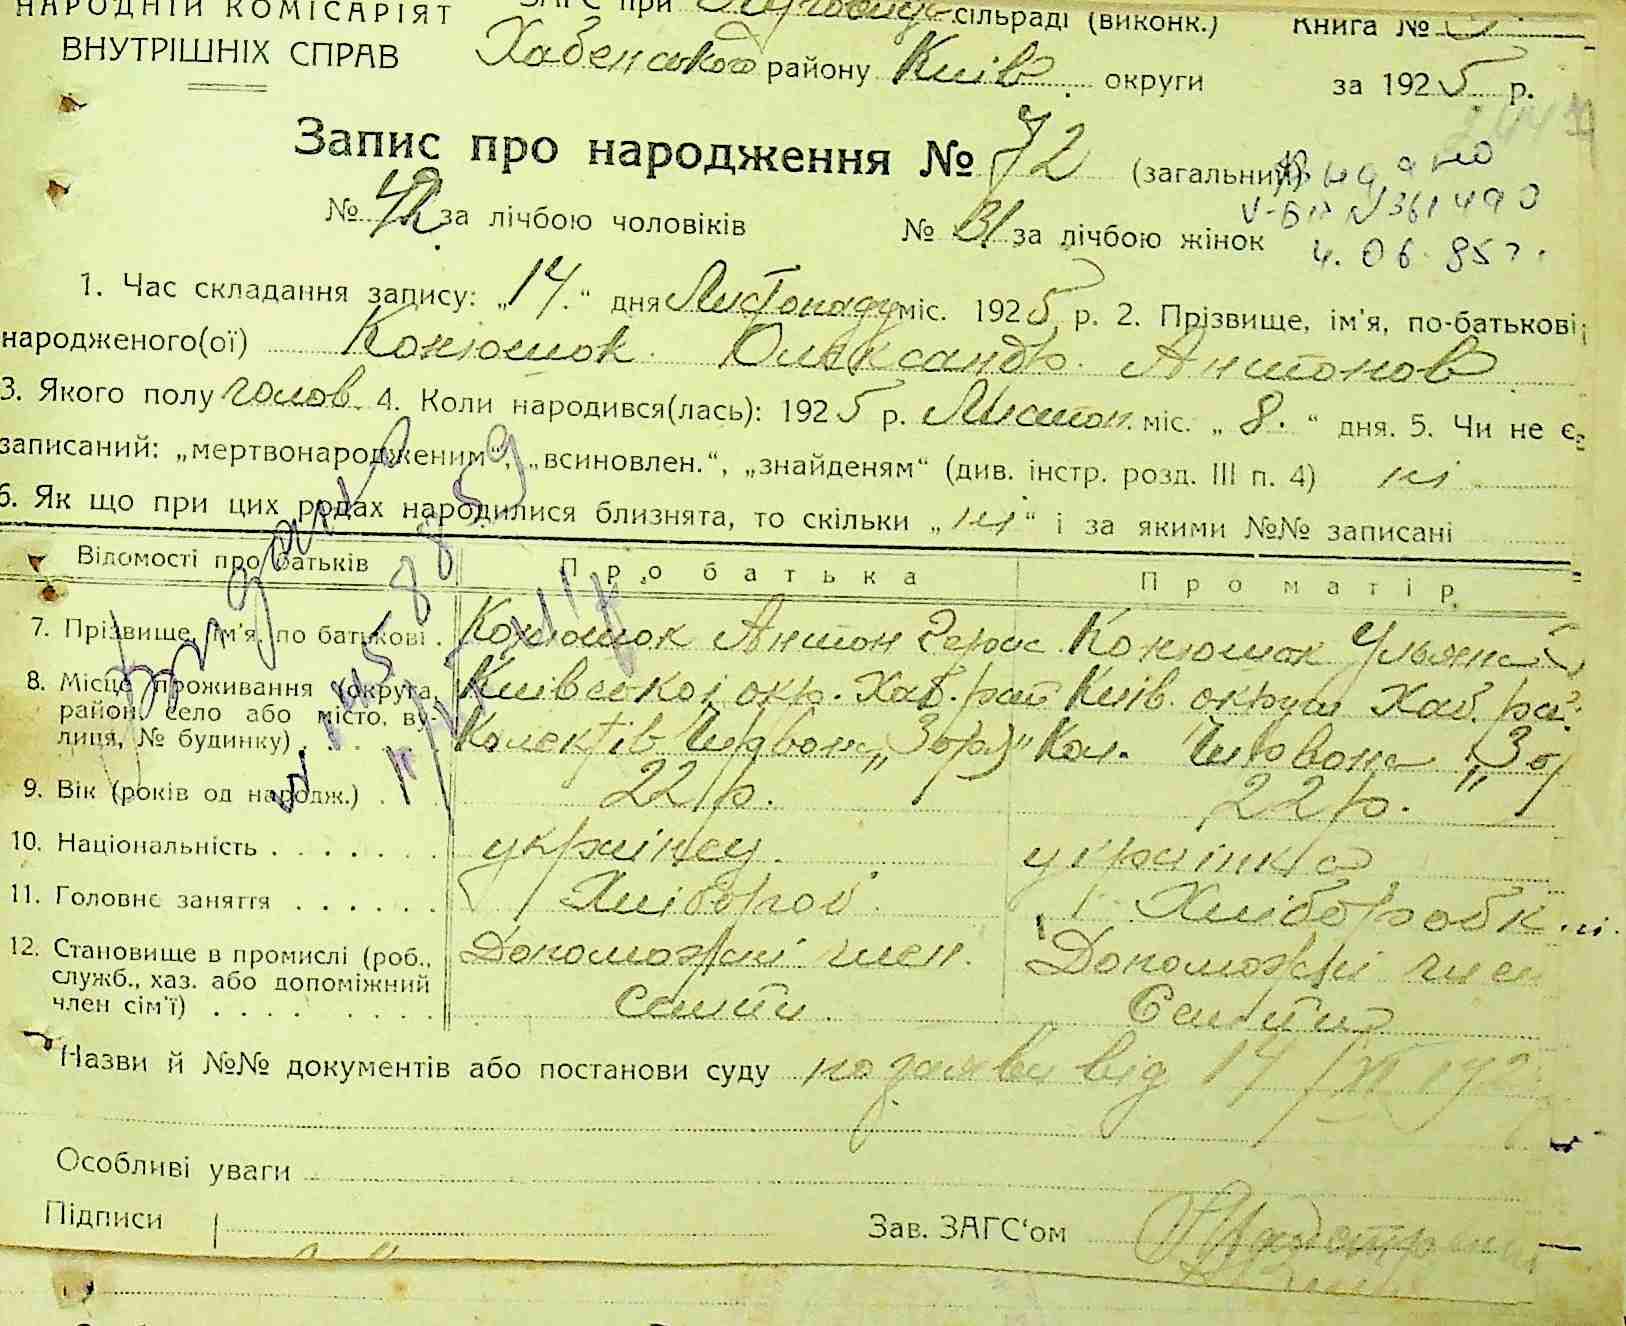 НАРОДНІЙ КОМІСАРІЯТ ЗАГС при сільраді (виконк.) Книга №
ВНУТРІШНІХ СПРАВ Хабенського району Київ. округи за 1925 р.
Запис про народження № 72 (загальний)
№ 42 за лічбою чоловіків № 31 за лічбою жінок
4. 06. 85 г.
1. Час складання запису: „14.“ дня Листопаду міс. 1925 р. 2. Прізвище, ім'я, по-батькові
народженого(ої) Конюшок Олександр. Антонов
3. Якого полу чолов. 4. Коли народився(лась): 1925 р. Листоп. міс. „8.“ дня. 5. Чи не є
записаний: „мертвонародженим“, „всиновлен.“, „знайденям“ (див. інстр. розд. III п. 4) ні
6. Як що при цих родах народилися близнята, то скільки „ні“ і за якими №№ записані
Відомості про батьків Про батька Про матір
7. Прізвище, ім'я, по батькові . Конюшок Антон Конюшок Ульяна
8. Місце проживання (округа, район, село або місто, вулиця, № будинку) Київської окр. Хаб. рай Київ. округи Хаб. ра
Колектів Червон „Зоря“ Кол. Червона „Зо
9. Вік (років од народж.) . 22 р. 22 р.
10. Національність . . . . . . . українец. українка
11. Головне заняття . . . . . . Хлібороб. Хлібороб
12. Становище в промислі (роб., служб., хаз. або допоміжний член сім'ї) . . . . Допоможні член. Допоможні член
семти. Семти
Назви й №№ документів або постанови суду по заяві від 14/XI 192
Особливі уваги
Підписи Зав. ЗАГС'ом